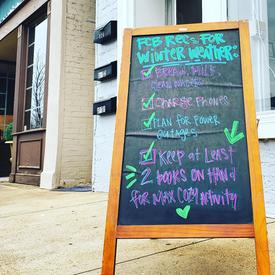 FCB Rec's FOR
WINTER WEATHER:
BREAD, MILK
CHARGE PHONES
PLAN FOR POWER
OUTAGES
KEEP AT LEAST
2 BOOKS ON HAND
FOR MAX COZY ACTIVITY